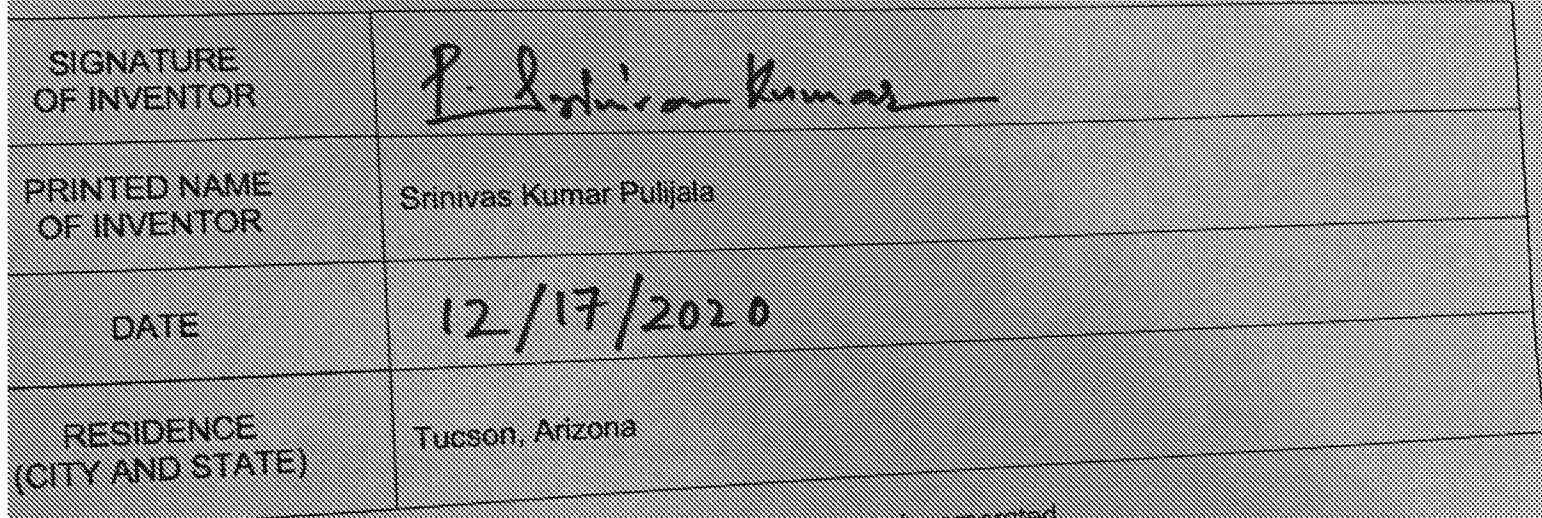 SIGNATURE
OF INVENTOR
P. Srinivas Kumar
PRINTED NAME
OF INVENTOR
Srinivas Kumar Pulijala
DATE
12/17/2020
RESIDENCE
(CITY AND STATE)
Tucson, Arizona